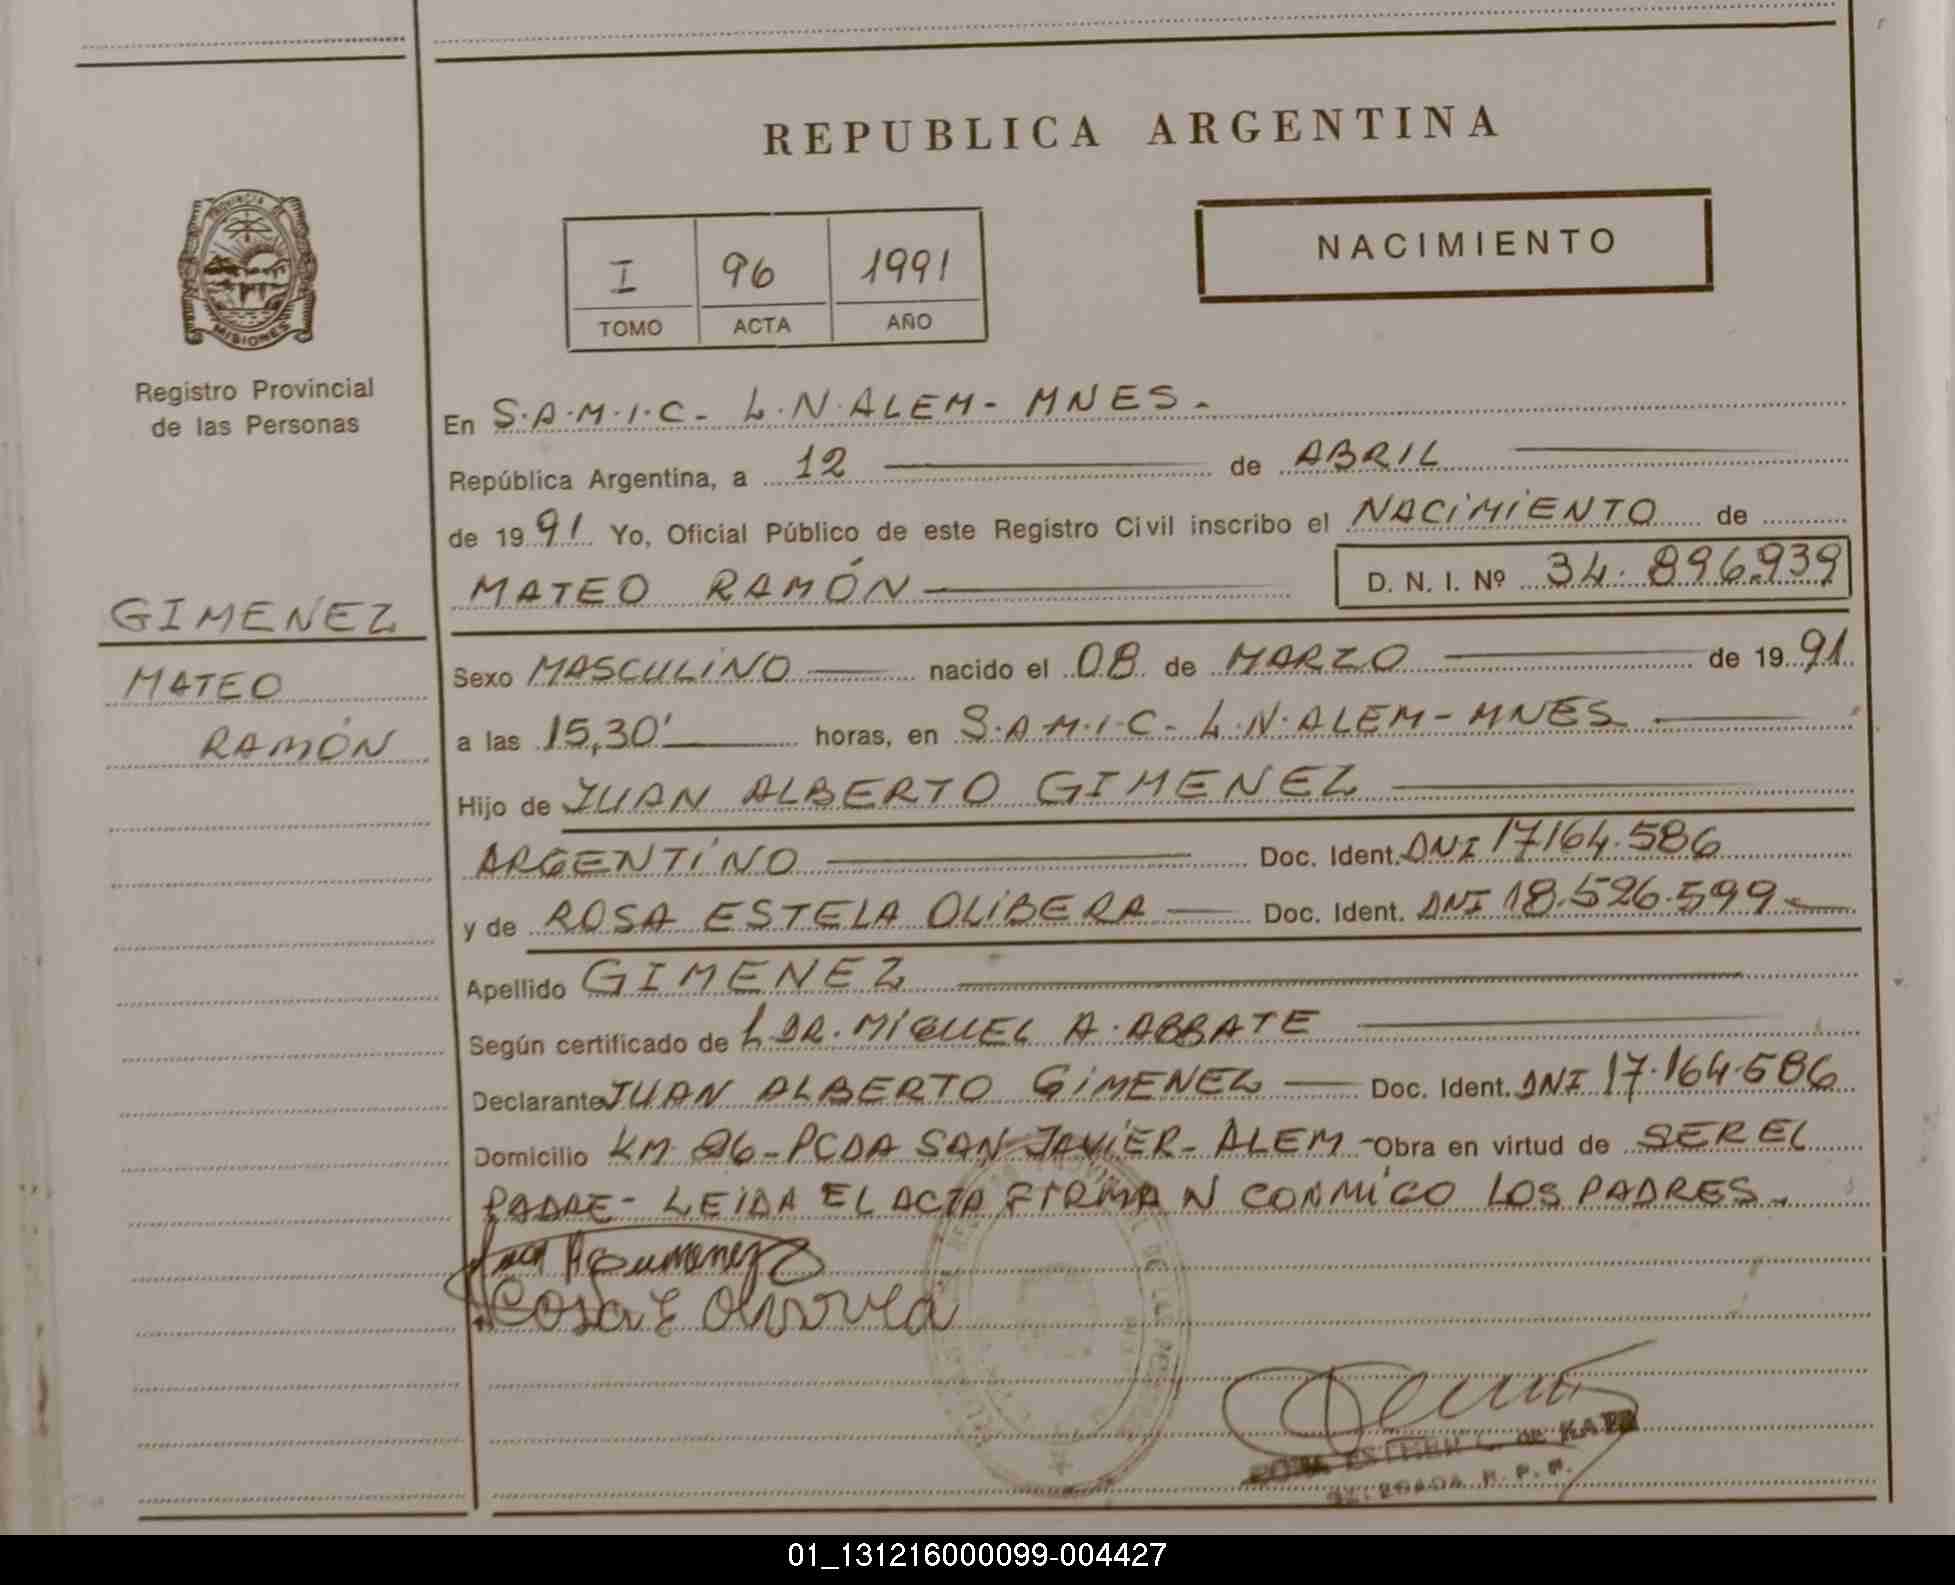 REPUBLICA ARGENTINA
PROVINCIA DE
MISIONES
Registro Provincial
de las Personas
I 96 1991
TOMO ACTA AÑO
NACIMIENTO
En S.A.M.I.C- L.N.ALEM- MNES-
República Argentina, a 12 de ABRIL
de 1991 Yo, Oficial Público de este Registro Civil inscribo el NACIMIENTO de
MATEO RAMÓN D. N. I. Nº 34.896.939
GIMENEZ
MATEO
RAMÓN
Sexo MASCULINO nacido el 08 de MARZO de 1991
a las 15,30' horas, en S.A.M.I.C- L.N.ALEM-MNES
Hijo de JUAN ALBERTO GIMENEZ
ARGENTINO Doc. Ident. DNI 17164.586
y de ROSA ESTELA OLIBERA Doc. Ident. DNI 18.526.599
Apellido GIMENEZ
Según certificado de DR. MIGUEL A. ABBATE
Declarante JUAN ALBERTO GIMENEZ Doc. Ident. DNI 17.164.586
Domicilio KM 26-PCDA SAN JAVIER- ALEM- Obra en virtud de SER EL
PADRE- LEIDA EL ACTA FIRMAN CONMIGO LOS PADRES-
Rosa E
ESTHER C. DE
R. P. P.
01_131216000099-004427